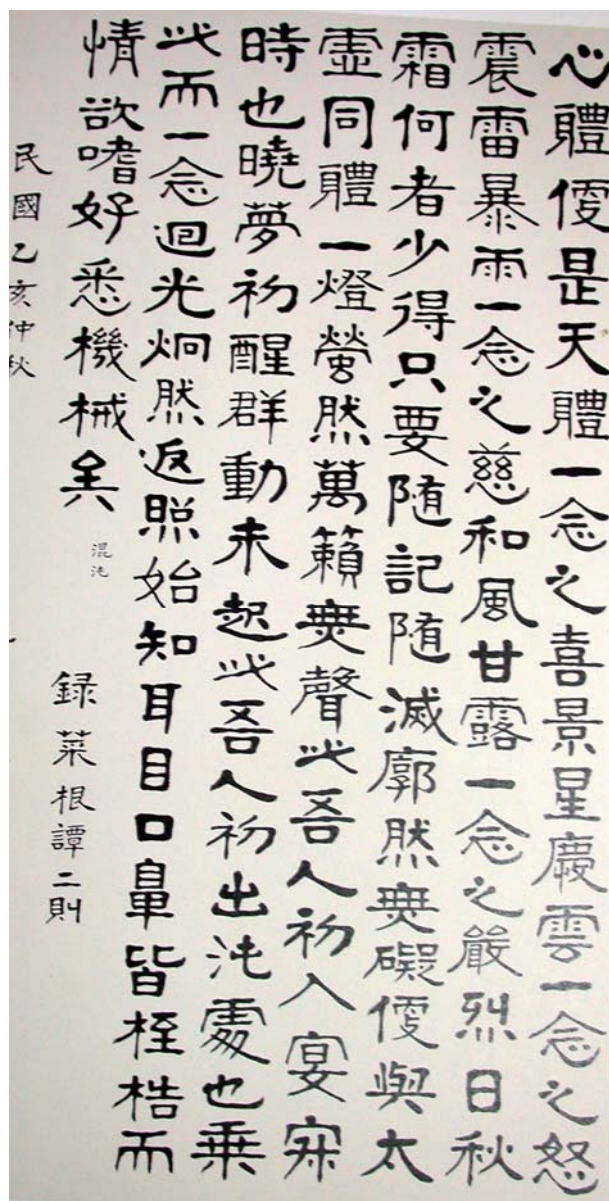 心體便是天體一念之喜景星慶雲一念之怒
震雷暴雨一念之慈和風甘露一念之嚴烈日秋
霜何者少得只要随記随滅廓然無礙便與太
虛同體一燈螢然萬籟無聲此吾人初入宴寂
時也曉夢初醒群動未起此吾人初出沌處也乘
此而一念迴光炯然返照始知耳目口鼻皆桎梏而
情欲嗜好悉機械矣
混沌
録菜根譚二則
民國乙亥仲秋